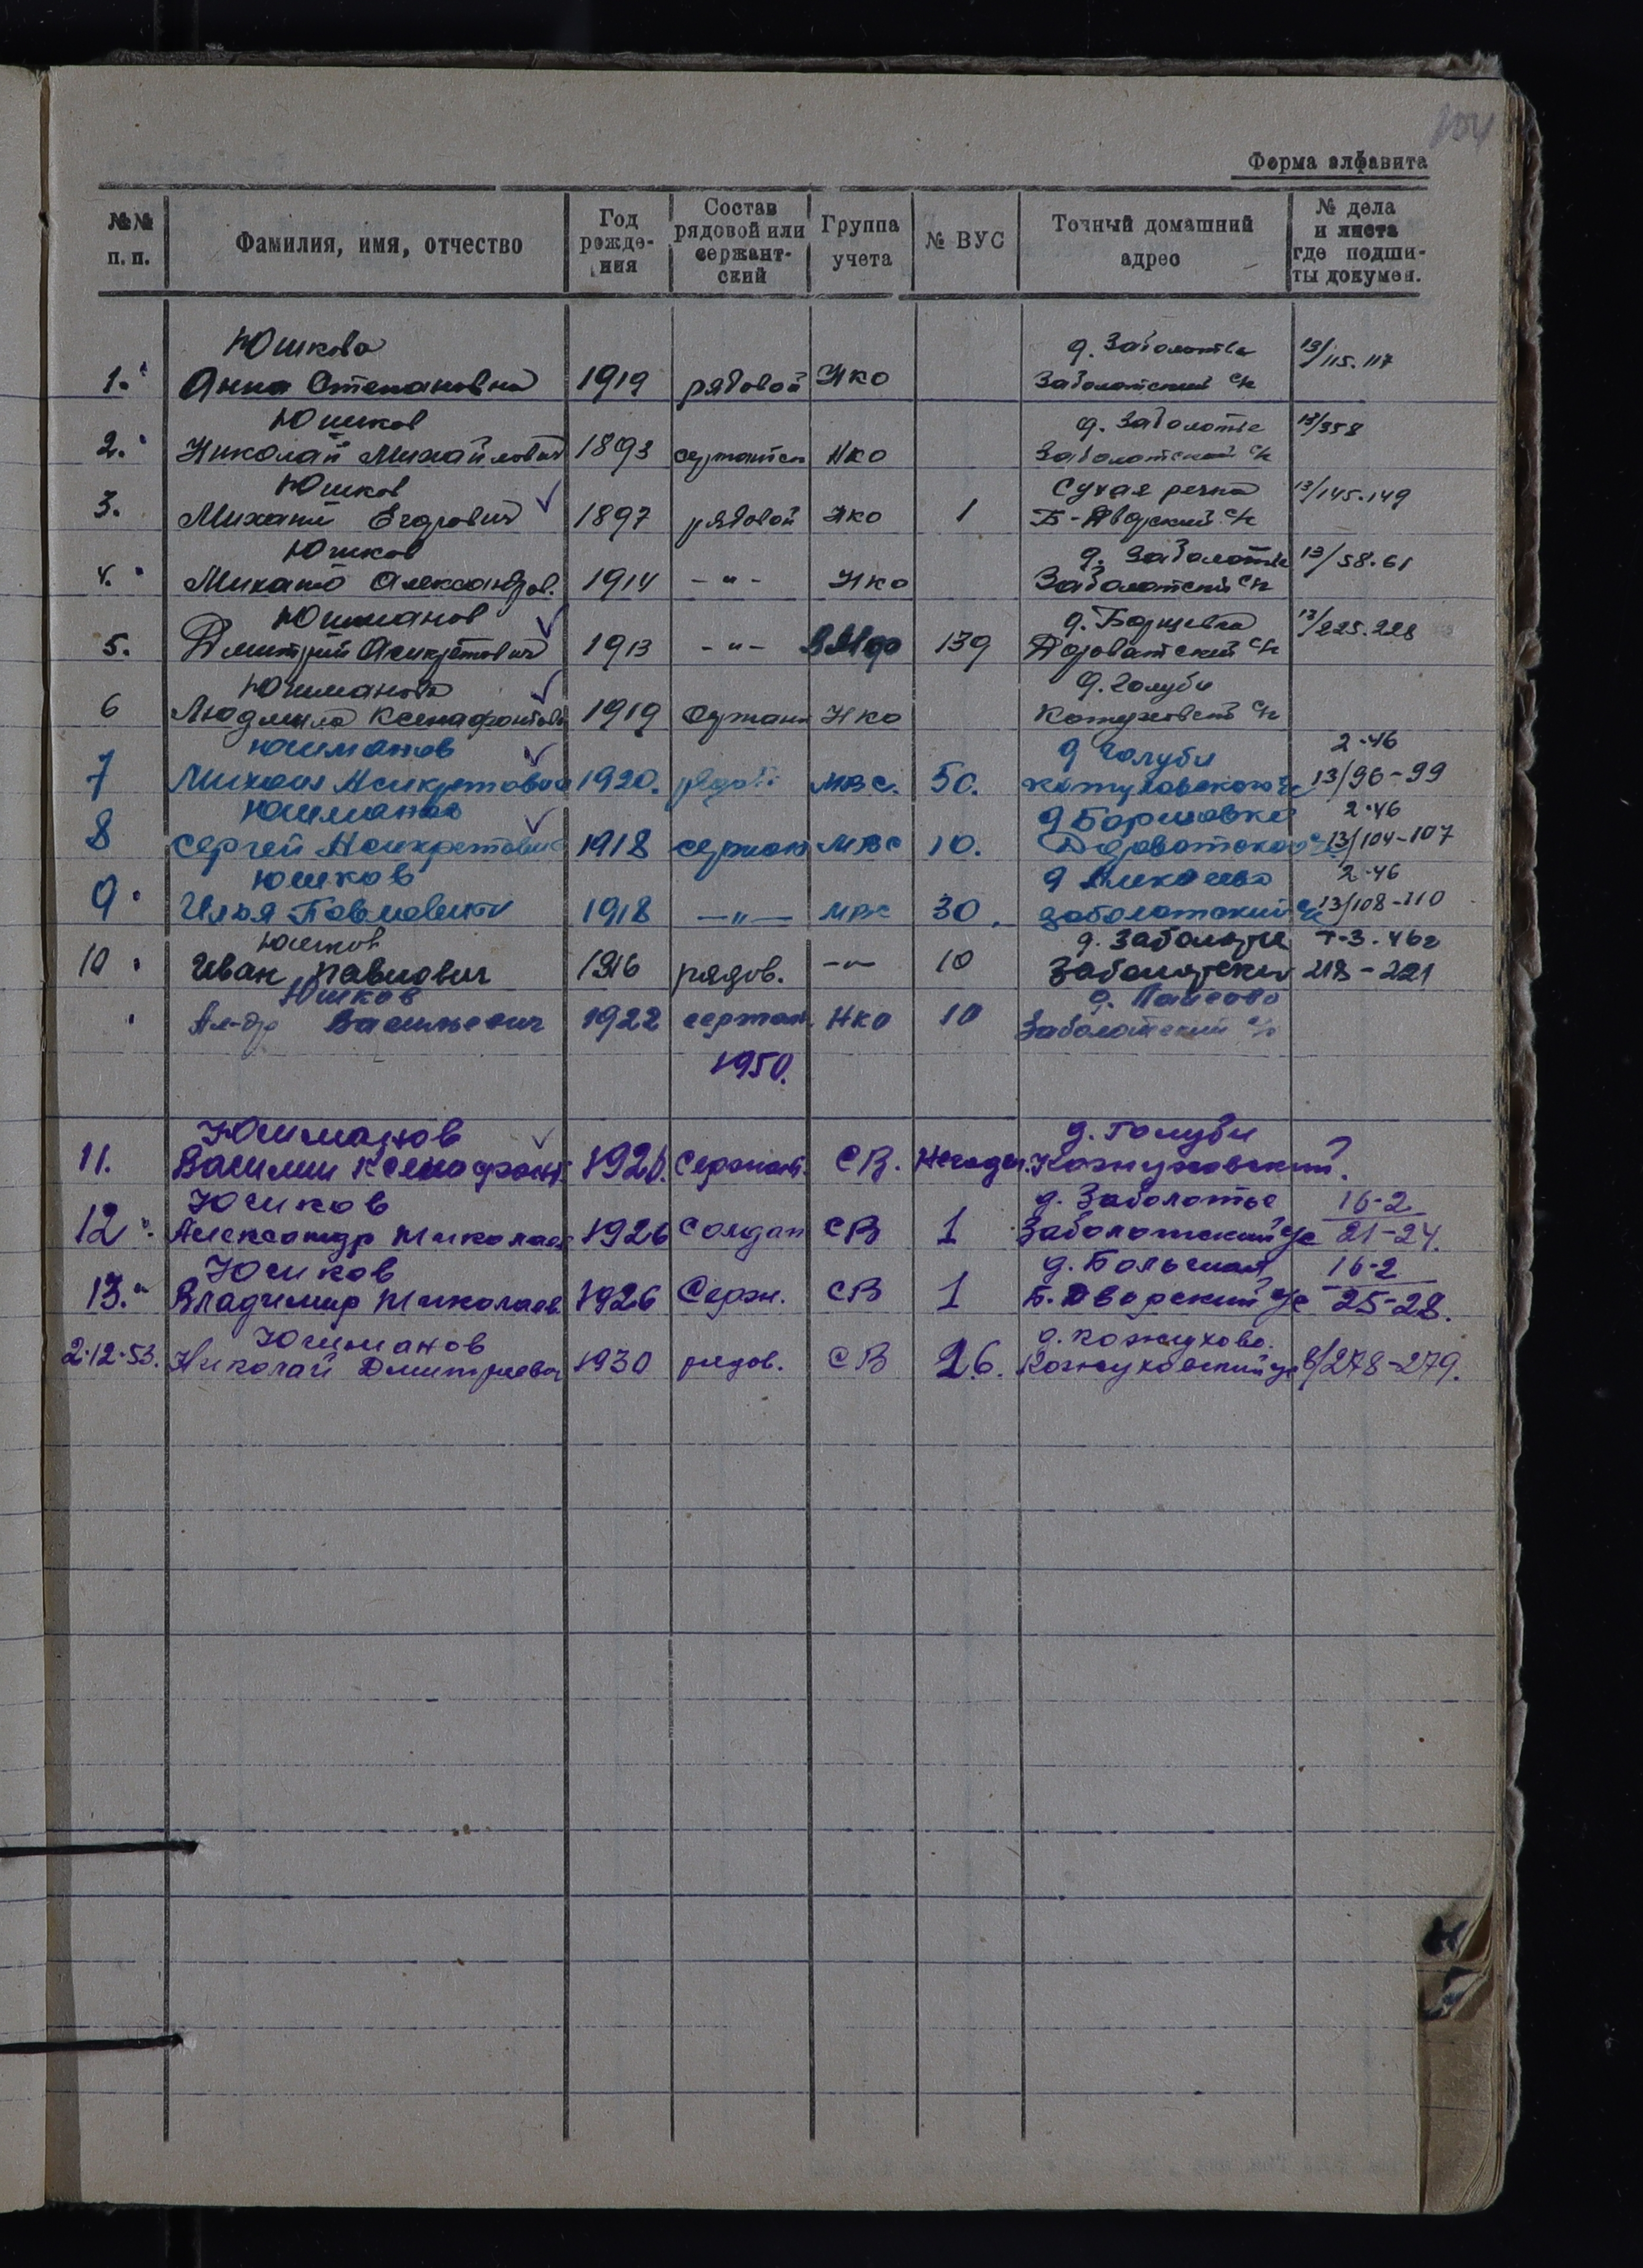 104
Форма алфавита
№№ п. п. Фамилия, имя, отчество Год рожде-ния Состав рядовой или сержант-ский Группа учета № ВУС Точный домашний адрес № дела и листа где подши-ты докумен.
Юшкова д. Заболотье 13/115.117
1. Анна Степановна 1919 рядовой НКО Заболотский с/с
Юшков д. Заболотье 13/358
2. Николай Михайлович 1893 НКО Заболотский с/с
Юшков Сухая речка 13/145.149
3. Михаил Егорович 1897 рядовой НКО 1 Б-Дворский с/с
Юшков д. Заболотье 13/58.61
4. Михаил Александров. 1914 -"- НКО Заболотский с/с
Юшманов д. Борщевка 13/225.228
5. Дмитрий Асикритович 1913 -"- ВМФ 139 с/с
Юшманова д. Голуби
6 Людмила Ксенафонтовн 1919 Сержант НКО с/с
Юшманов д Голуби 2-46
7 Михаил Асикритович 1920. рядов МВС. 50. 13/96-99
Юшманов д Борщовка 2-46
8 Сергей Асикретович 1918 сержан МВС 10. 13/104-107
Юшков д 2-46
9 Илья Павлович 1918 -"- МВС 30. Заболотский с/с 13/108-110
Юшков д. Заболотье 7-3.46г
10 Иван Павлович 1916 рядов. -"- 10 Заболотский 218-221
Юшков д. Пайсово
Ал-др Васильевич 1922 сержан НКО 10 Заболотский с/с
1950.
Юшманов д. Голуби
11. Василий Ксенофонт. 1920. Сержант. СВ. Негоден. Кожуховский ?
Юшков д. Заболотье 16-2
12. Александр Николаев 1926 Солдат СВ 1 Заболотский с/с 21-24.
Юшков д. Большая 16-2
13. Владимир Николаев 1926 Серж. СВ 1 Б. Дворский с/с 25-28.
Юшманов д. Кожухово.
2.12.53. Николай Дмитриевич 1930 рядов. СВ 26. Кожуховский с/с 8/278-279.